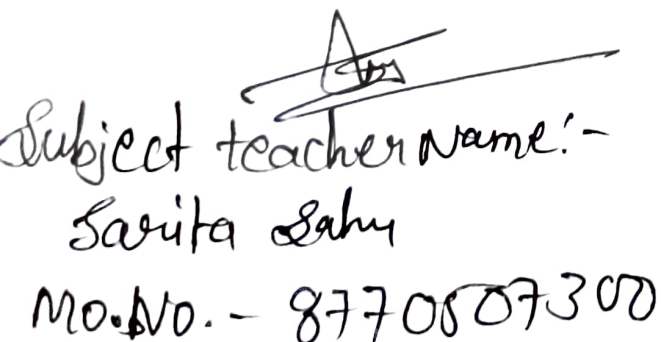 Subject teacher Name:-
Sarita Sahu
Mo.No. - 8770507300